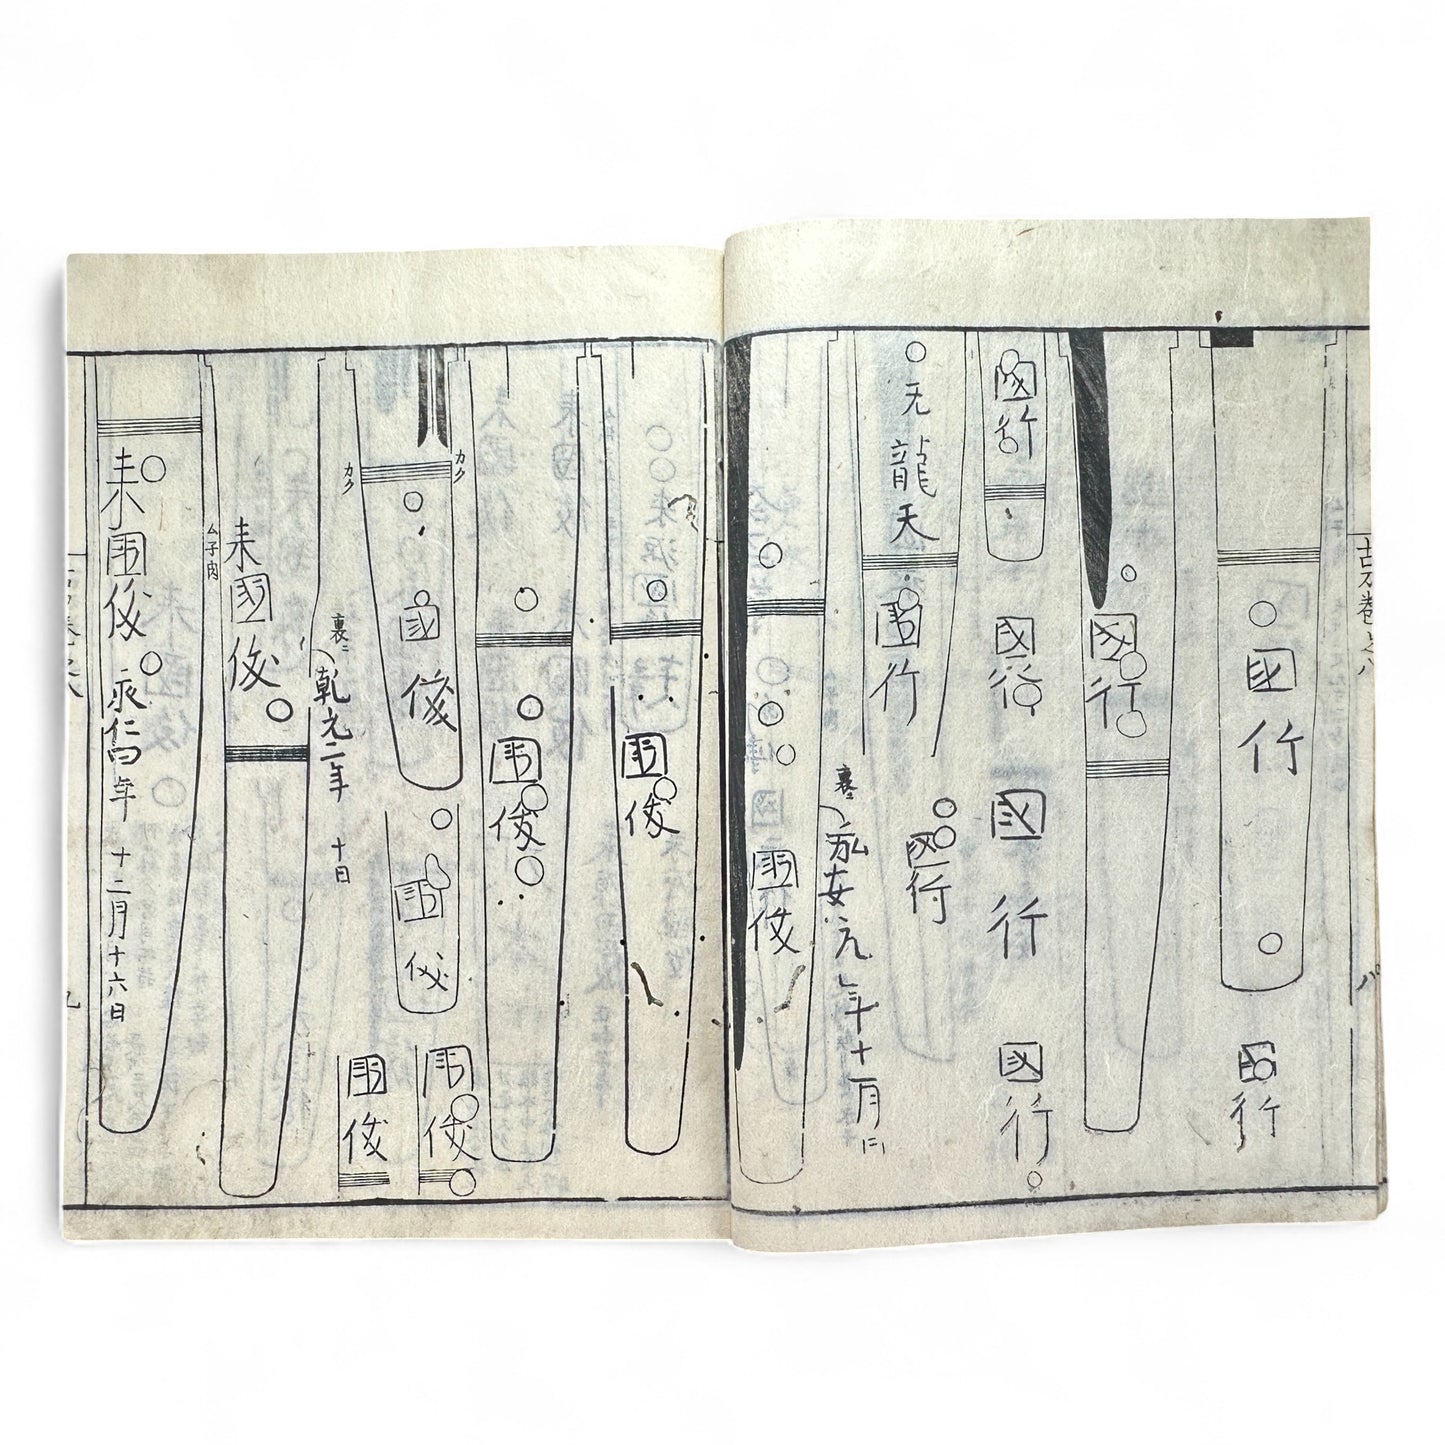 古刀卷之八
八
國行
國行
國行
國行
國行
國行
國行
无龍天
國行
國行
裏ニ
弘安元年十一月日
國俊
國俊
國俊
カク
カク
國俊
國俊
國俊
國俊
裏ニ
乾元二年 十日
來國俊
ム子肉
來國俊 永仁四年 十二月十六日
九